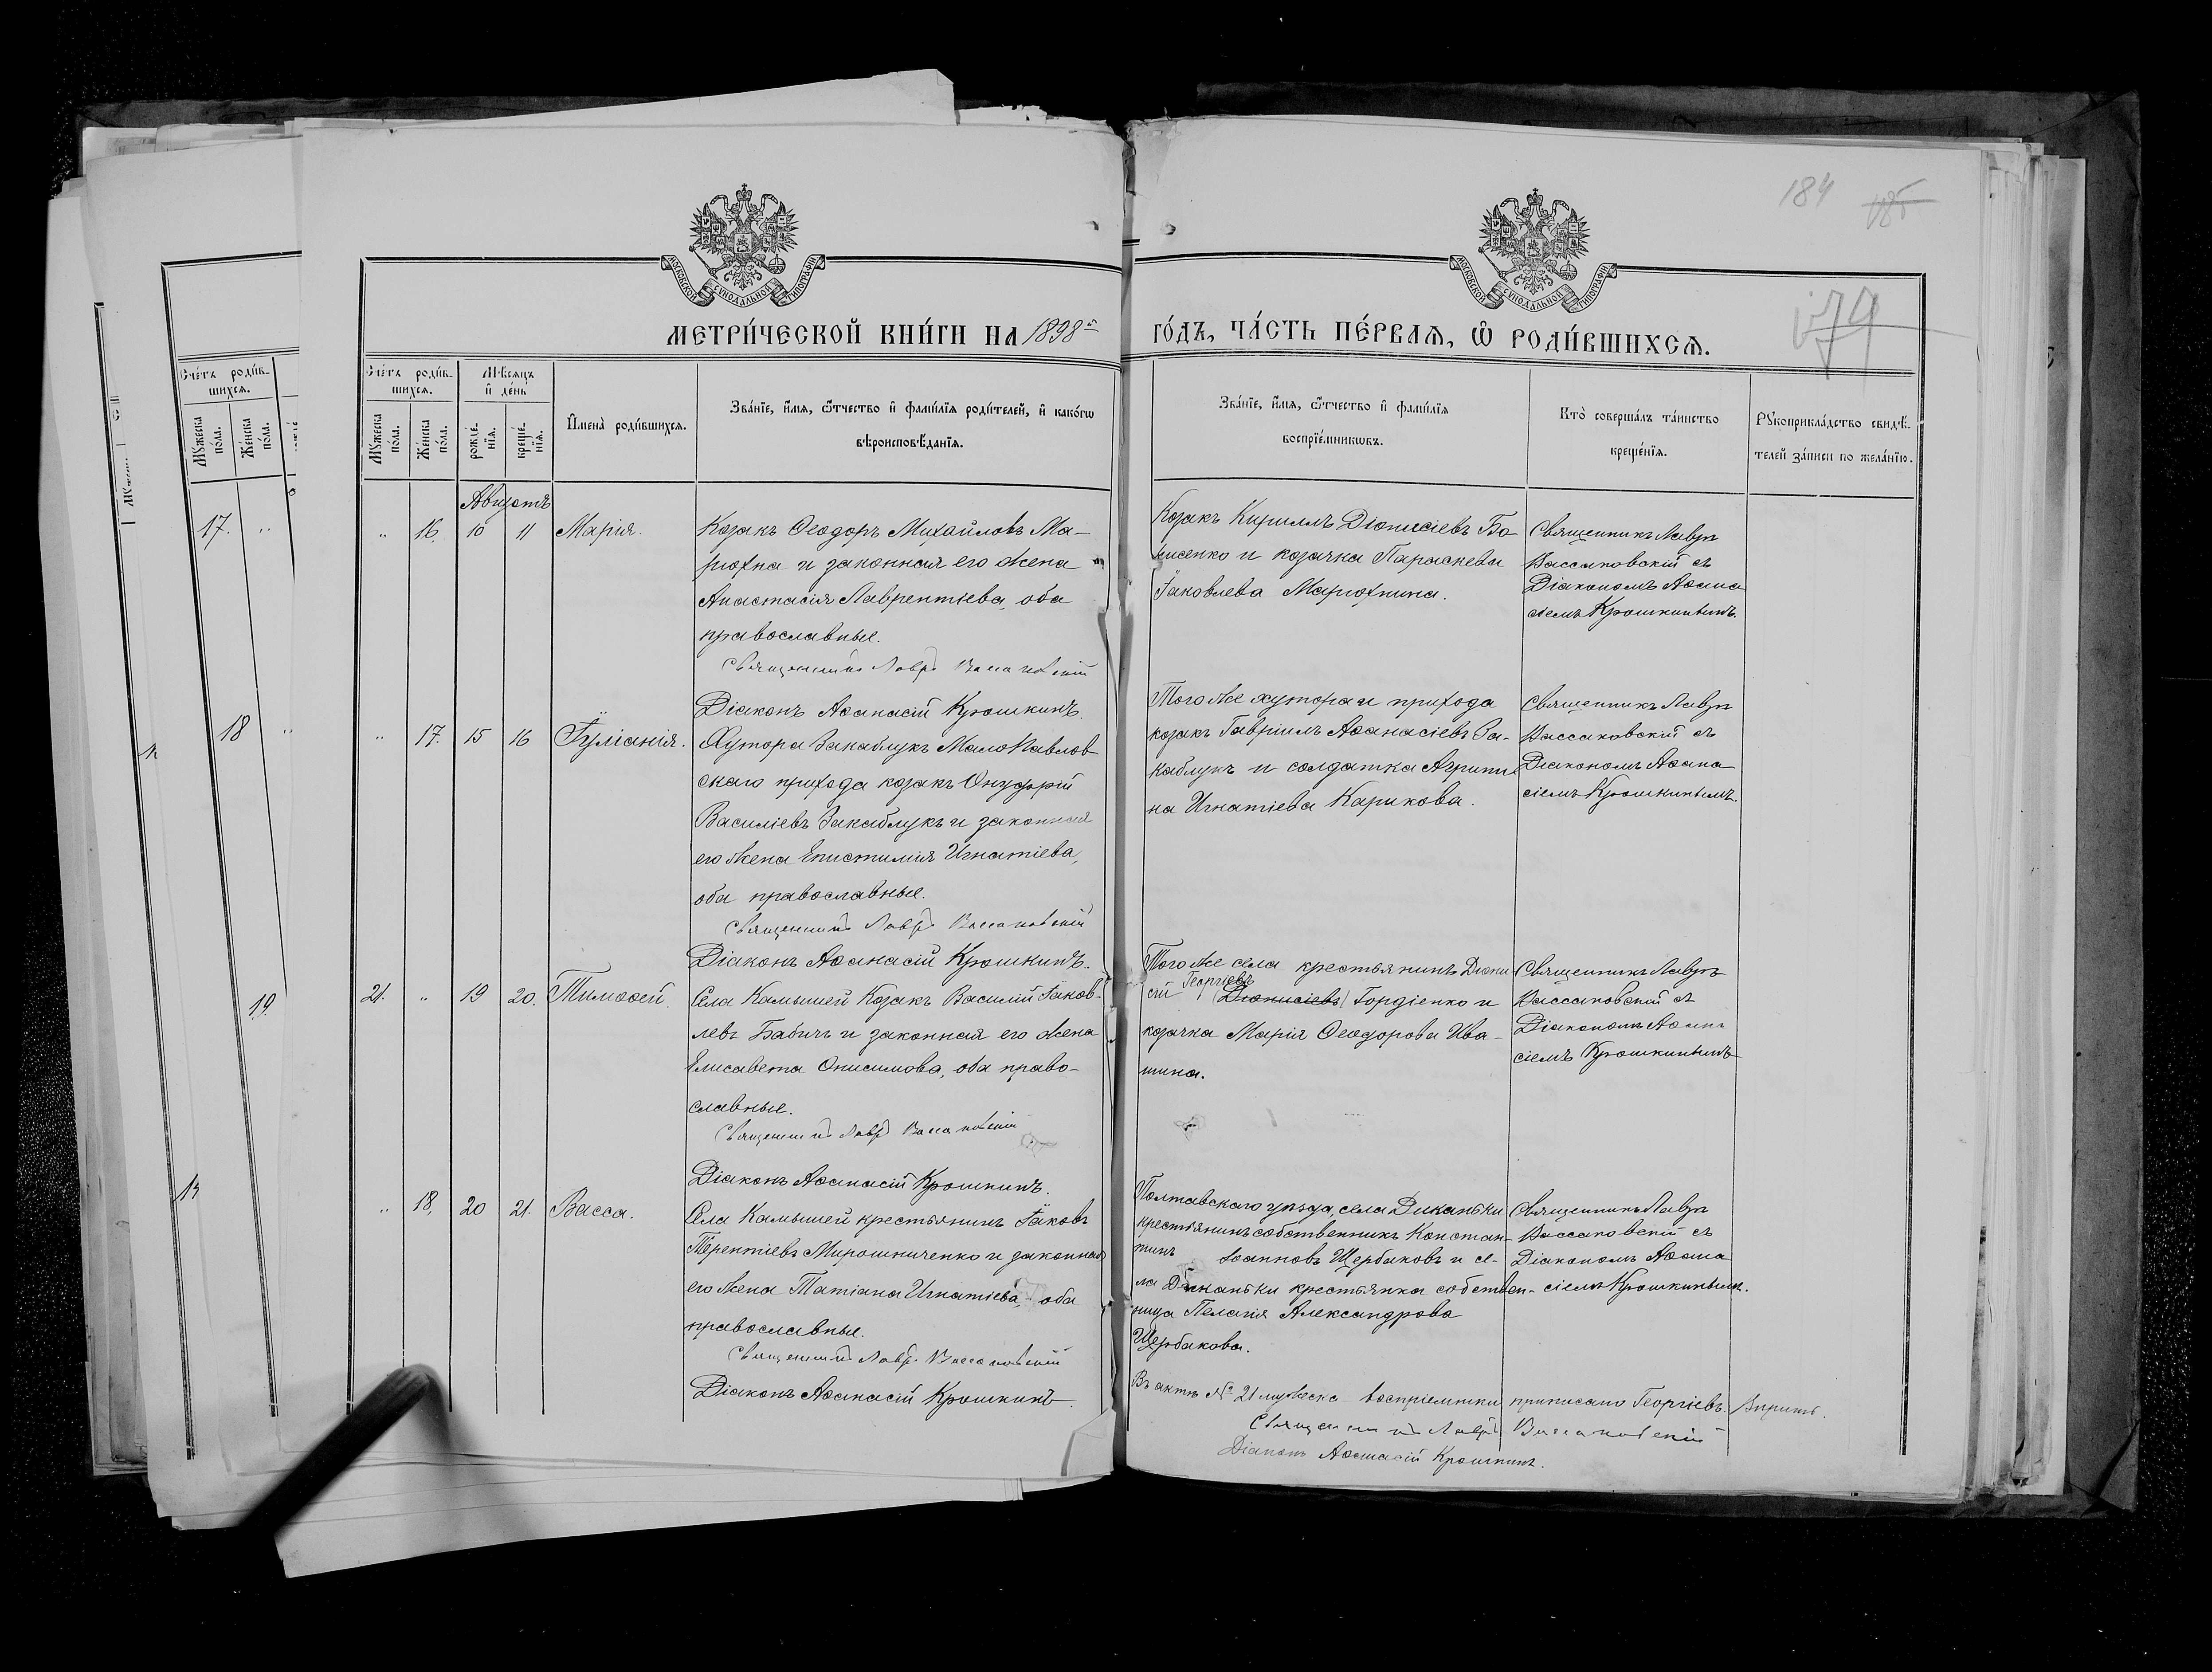 184 185
179
МОСКОВСКОЙ СѴНОДАЛЬНОЙ ТИПОГРАФІИ
МОСКОВСКОЙ СѴНОДАЛЬНОЙ ТИПОГРАФІИ
МЕТРИ́ЧЕСКОЙ КНИ́ГИ НА 1898й ГО́ДЪ, ЧА́СТЬ ПЕ́РВАѦ, Ѿ РОДИ́ВШИХСѦ.
Сче́тъ роди́в-
шихсѧ.
Мꙋ́жеска
по́ла.
Же́нска
по́ла.
17. „
18 „
19
Сче́тъ роди́в-
шихсѧ.
Мꙋ́жеска
по́ла.
Же́нска
по́ла.
Мѣ́сѧцъ
и҆ де́нь
рожде́-
нїѧ.
креще́-
нїѧ.
И҆мена̀ роди́вшихсѧ.
Зва́нїе, и҆́мѧ, ѻ҆́тчество и҆ фами́лїѧ роди́телей, и҆ како́гѡ
вѣроисповѣ́данїѧ.
Зва́нїе, и҆́мѧ, ѻ҆́тчество и҆ фами́лїѧ
воспрїе́мникѡвъ.
Кто̀ соверша́лъ та́инство
креще́нїѧ.
Рꙋкоприкла́дство свидѣ́-
телей за́писи по жела́нїю.
Августъ
„ 16. 10 11 Марія.
Козакъ Ѳеодоръ Михайловъ Ма-
рюхна и законная его жена
Анастасія Лаврентіева, оба
православные.
Священникъ Лавръ Вассаковскій
Діаконъ Аѳанасій Крошкинъ.
Козакъ Кириллъ Діонисіевъ Бо-
рисенко и козачка Параскева
Іаковлева Марюхнина.
Священникъ Лавръ
Вассаковскій съ
Діакономъ Аѳана
сіемъ Крошкинымъ.
„ 17. 15 16 Іуліанія.
Хутора Закаблукъ Мало Павлов
скаго прихода козакъ Онуфрій
Василіевъ Закаблукъ и законная
его жена Епистимія Игнатіева,
оба православные.
Священникъ Лавръ Вассаковскій
Діаконъ Аѳанасій Крошкинъ.
Того же хутора и прихода
козакъ Гавріилъ Аѳанасіевъ За-
каблукъ и солдатка Агрипи
на Игнатіева Карикова.
Священникъ Лавръ
Вассаковскій съ
Діакономъ Аѳана
сіемъ Крошкинымъ.
21. „ 19 20. Тимоѳей.
Села Камышей Козакъ Василій Іаков-
левъ Бабичъ и законная его жена
Елисавета Онисимова, оба право-
славные.
Священникъ Лавръ Вассаковскій
Діаконъ Аѳанасій Крошкинъ.
Того же села крестьянинъ Діони
сій Георгіевъ (Діонисіевъ) Гордіенко и
козачка Марія Ѳеодорова Ива-
шина.
Священникъ Лавръ
Вассаковскій съ
Діакономъ Аѳана
сіемъ Крошкинымъ
„ 18. 20 21. Васса.
Села Камышей крестьянинъ Іаковъ
Терентіевъ Мирошниченко и законная
его жена Татіана Игнатіева, оба
православные.
Священникъ Лавръ Вассаковскій
Діаконъ Аѳанасій Крошкинъ.
Полтавскаго уѣзда, села Диканьки
крестьянинъ собственникъ Констан-
тинъ Іоанновъ Щербаковъ и се-
ла Диканьки крестьянка собствен-
ница Пелагія Александрова
Щербакова.
Священникъ Лавръ
Вассаковскій съ
Діакономъ Аѳана
сіемъ Крошкинымъ.
Въ актѣ № 21 мужеска воспріемники приписано Георгіевъ.
Священникъ Лавръ Вассаковскій
Діаконъ Аѳанасій Крошкинъ.